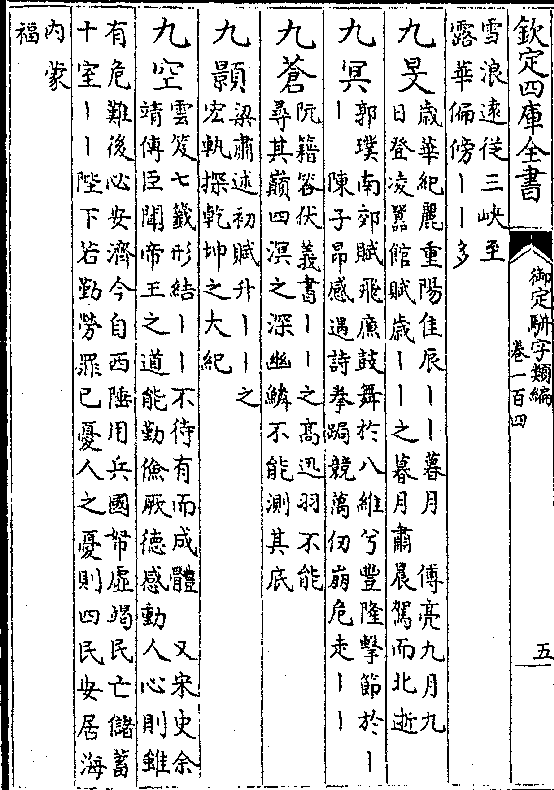 欽定四庫全書
御定駢字類編
卷一百四
五
雪浪遠從三峽至
露華偏傍丨丨多
九旻
歳華紀麗重陽佳辰丨丨暮月　傅亮九月九
日登凌嚻館賦歳丨丨之暮月肅晨駕而北逝
九㝠
郭璞南郊賦飛廉鼓舞於八維兮豐隆擊節於丨
丨　陳子昂感遇詩拳跼競萬仞崩危走丨丨
九蒼
阮籍答伏義書丨丨之髙迅羽不能
尋其巔四溟之深幽鱗不能測其底
九顥
梁肅述初賦升丨丨之
宏軌探乾坤之大紀
九空
雲笈七籤形結丨丨不待有而成體　又宋史余
靖傳臣聞帝王之道能勤儉厥德感動人心則雖
有危難後必安濟今自西陲用兵國帑虛竭民亡儲蓄
十室丨丨陛下若勤勞罪己憂人之憂則四民安居海
内蒙
福